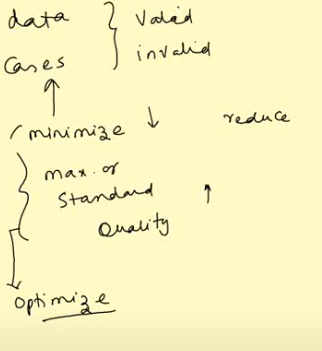 data } valid
cases } invalid
↑
/ minimize ↓ reduce
{ max. or
standard ↑
Quality
optimize